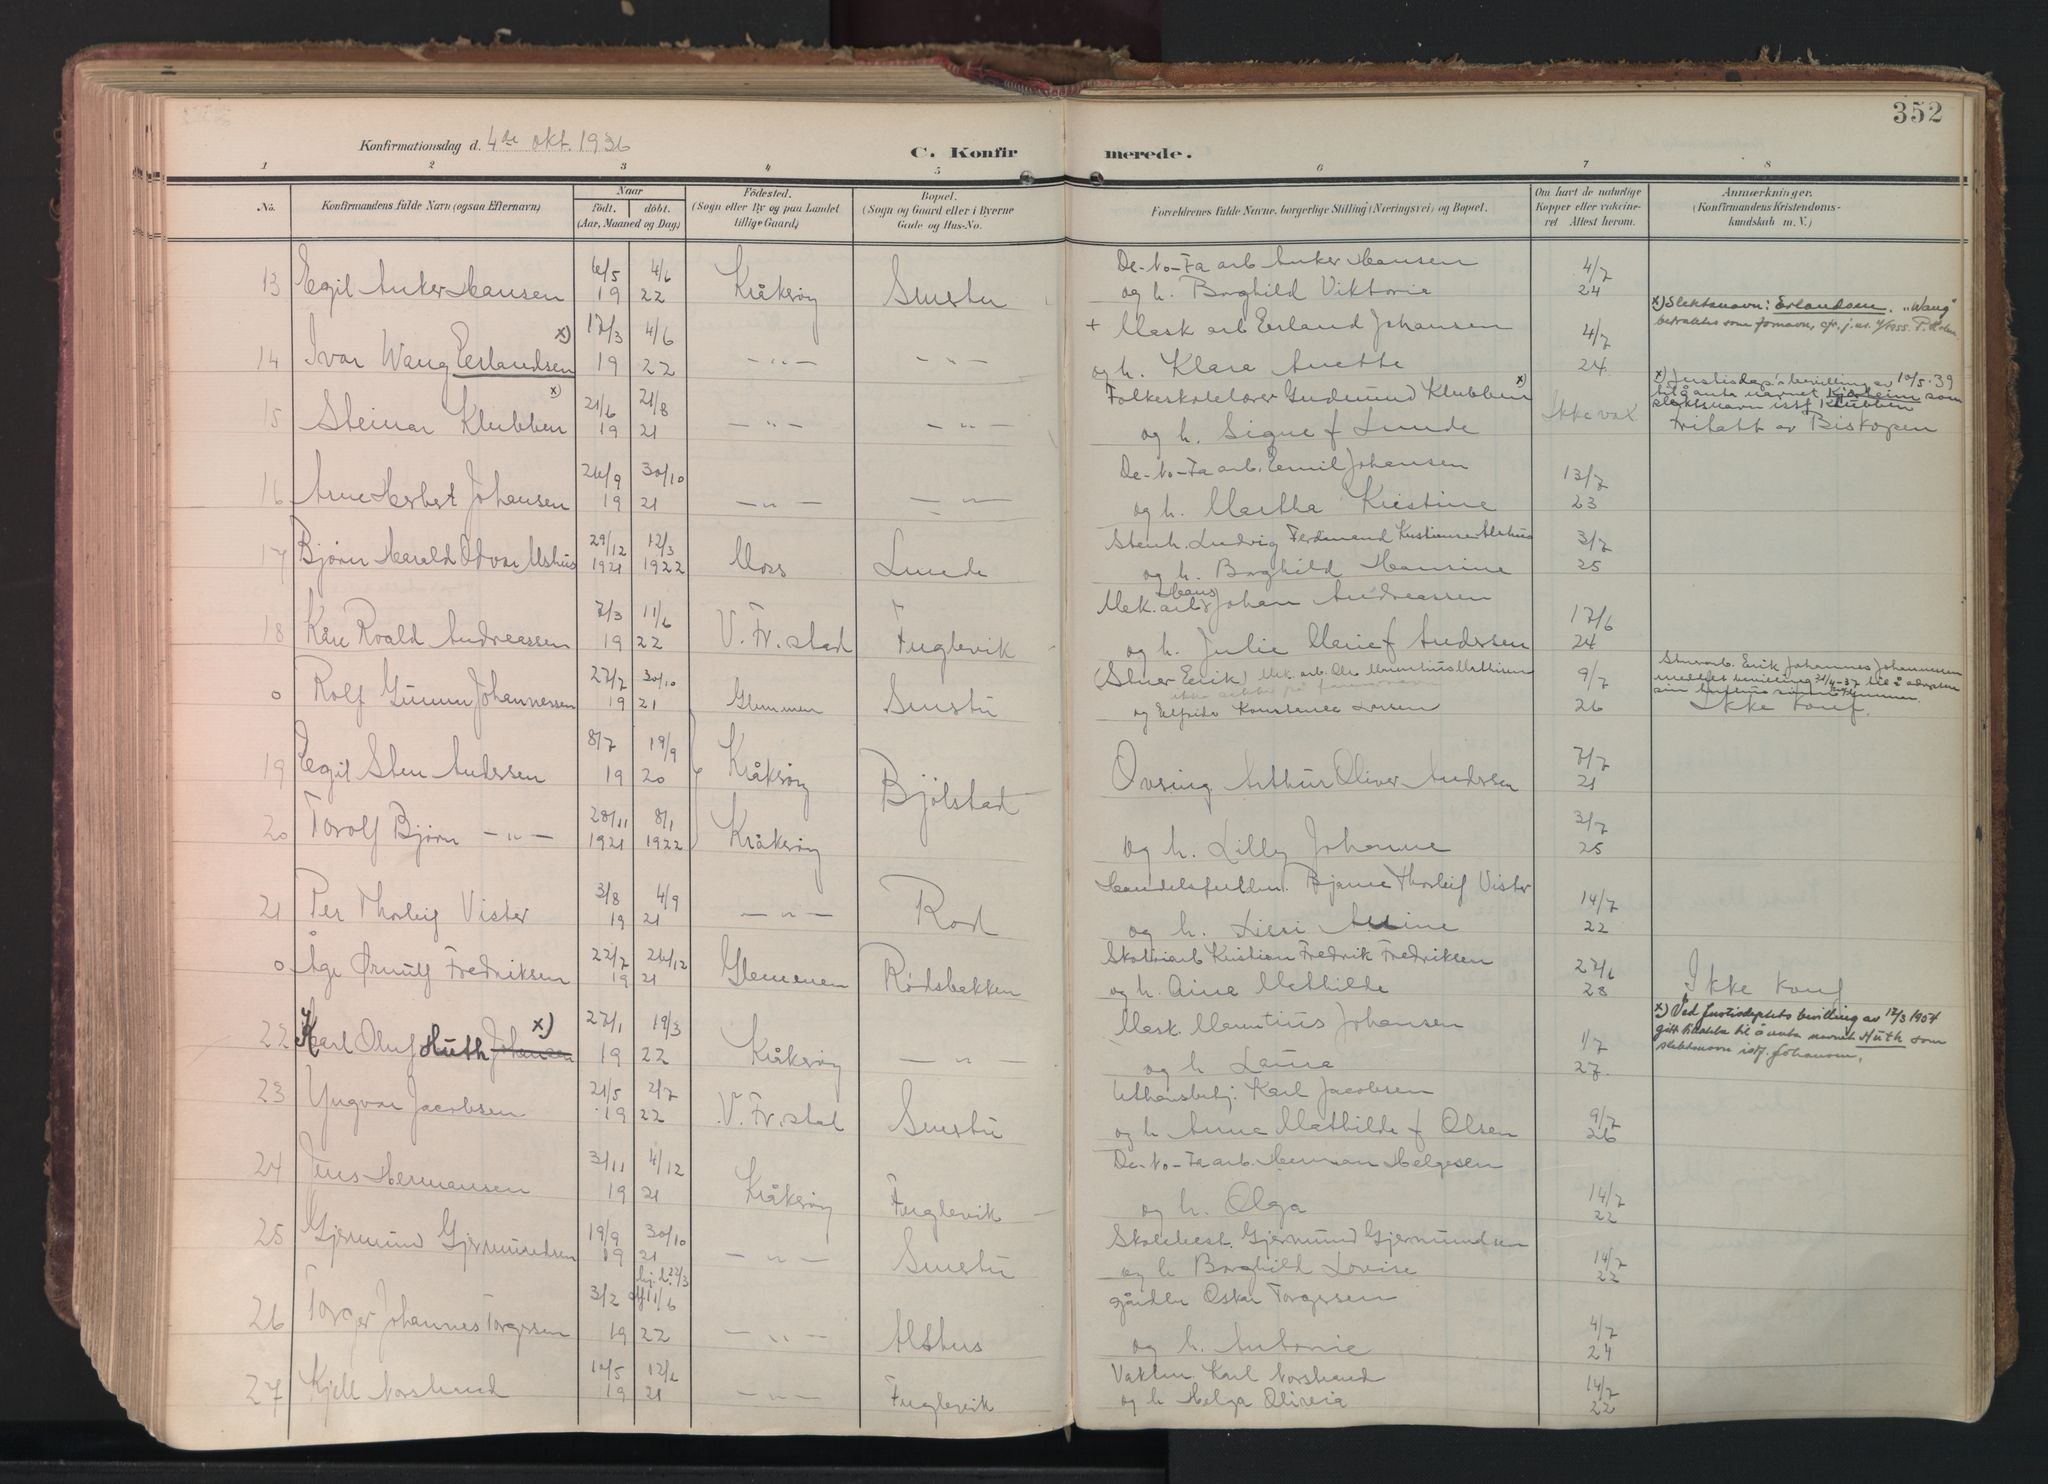 352
Konfirmationsdag d. 4de okt. 1936
C. Konfirmerede.
1 2 3 4 5 6 7 8
No.
Konfirmandens fulde Navn (ogsaa Efternavn)
Naar
födt. döbt.
(Aar, Maaned og Dag)
Födested.
(Sogn eller By og paa Landet tillige Gaard)
Bopæl.
(Sogn og Gaard eller i Byerne Gade og Hus-No.
Forældrenes fulde Navne, borgerlige Stilling (Næringsvei) og Bopæl.
Om havt de naturlige Kopper eller vaccineret Attest herom.
Anmærkninger.
(Konfirmandens Kristendomskundskab m. V.)
13 Egil Anker Hansen 6/5 19 4/6 22 Kråkerøy Smertu De-No-Fa arb. Anker Hansen
og h. Borghild Viktorie 4/7 24
14 Ivar Waug Erlandsen x) 17/3 19 4/6 22 — " — + Mask arb Erland Johansen
og h. Klara Anette 4/7 24
x) Slektsnavn: Erlandsen. "Waug"
betraktes som fornavn,
15 Steinar Klubben x) 21/6 19 21/8 21 — " — — " — Folkeskolelærer Gudmund Klubben x)
og h. Signe f Lunde Ikke vak
x) Justisdep's bevilling av 10/5-39
til å anta navnet Kjærheim som
slektsnavn istf. Klubben
fritatt av Biskopen
16 Arne Herbert Johansen 26/9 19 30/10 21 — " — — " — De-No-Fa arb. Emil Johansen
og h. Martha Kristine 13/7 23
17 Bjørn Harald Odvar Alshus 29/12 1921 12/3 1922 Moss Lunde Stenh. Ludvig Ferdinand Kristiansen Alshus
og h. Borghild Hansine 3/7 25
18 Kåre Roald Andreassen 7/3 19 11/6 22 V. Fr.stad Fuglevik Mek. arb. Hans Johan Andreassen
og h. Julie Marie f Andersen 17/6 24
0 Rolf Gunnar Johannessen 27/7 19 30/10 21 Glemmen Smertu (Stuer Erik) Mek. arb. Ole Mauritius Mathisen
og Elfrida Konstance Larsen 9/7 26
Stuerarb. Erik Johannes Johannessen
meddelt bevilling 21/4-37 til å adoptere
Ikke konf.
19 Egil Sten Andersen 8/7 19 19/9 20 Kråkerøy Bjölstad Ovsing Arthur Oliver Andersen 7/7 21
20 Torolf Bjørn — " — 28/11 1921 8/1 1922 Kråkerøy og h. Lilly Johanne 3/7 25
21 Per Thorleif Vister 3/8 19 4/9 21 — " — Rød Handelsfuldm. Bjarne Thorleif Vister
og h. Lieri Aline 14/7 22
0 Åge Ørnulf Fredriksen 22/7 19 26/12 21 Glemmen Rødsbakken Skotöiarb Kristian Fredrik Fredriksen
og h. Aina Mathilde 27/6 28 Ikke konf
22 Karl Oluf Huth Johansen x) 27/1 19 19/3 22 Kråkerøy — " — Mask. Mauritius Johansen
og h Laura 1/7 27.
x) Ved Justisdeptets bevilling av 12/3 1954
gitt tillatelse til å anta navnet Huth som
slektsnavn istf. Johansen.
23 Yngvar Jacobsen 21/5 19 2/7 22 V. Fr.stad Smertu Uthansbetj. Karl Jacobsen
og h Anna Mathilde f Olsen 9/7 26
24 Jens Hermansen 3/11 19 4/12 21 Kråkerøy Fuglevik De-No-Fa arb. Herman Helgesen
og h. Olga 14/7 22
25 Gjermund Gjermundsen 19/9 19 30/10 21 — " — Smertu Skolebest. Gjermund Gjermundsen
og h Borghild Lovise 14/7 22
26 Torger Johannes Torgersen 3/2 19 hj. d. 22/3 11/6 22 — " — Alshus gårdbr Oskar Torgersen
og h. Antonie 4/7 24
27 Kjell Norstrand 10/5 19 12/6 21 — " — Fuglevik Vaktm. Karl Norstrand
og h Helga Olivia 14/7 22